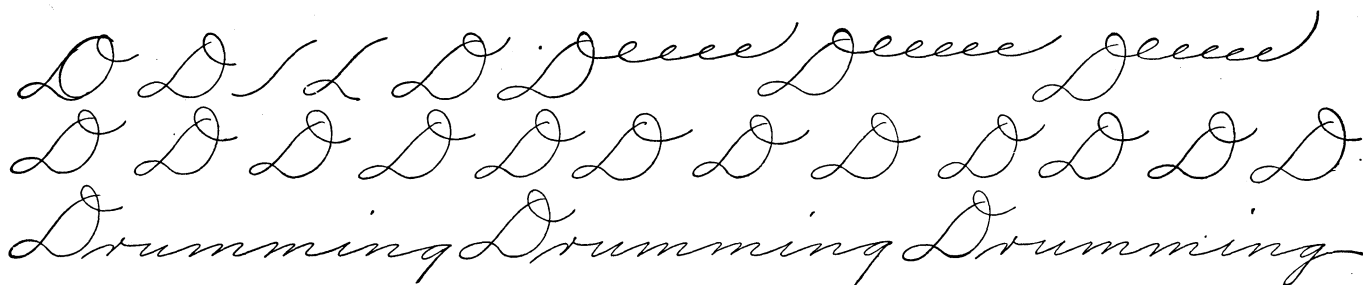 D D D Deeee Deeeee Deeee
D D D D D D D D D D D D
Drumming Drumming Drumming